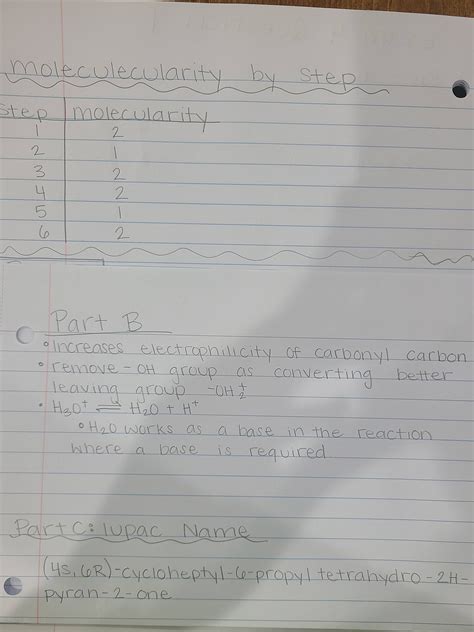 moleculecularity by step
step molecularity
1 2
2 1
3 2
4 2
5 1
6 2
Part B
• increases electrophilicity of carbonyl carbon
• remove -OH group as converting better
leaving group -OH2+
• H3O+ ⇌ H2O + H+
• H2O works as a base in the reaction
where a base is required
Part C: IUPAC Name
(4S, 6R)-cycloheptyl-6-propyl tetrahydro-2H-
pyran-2-one